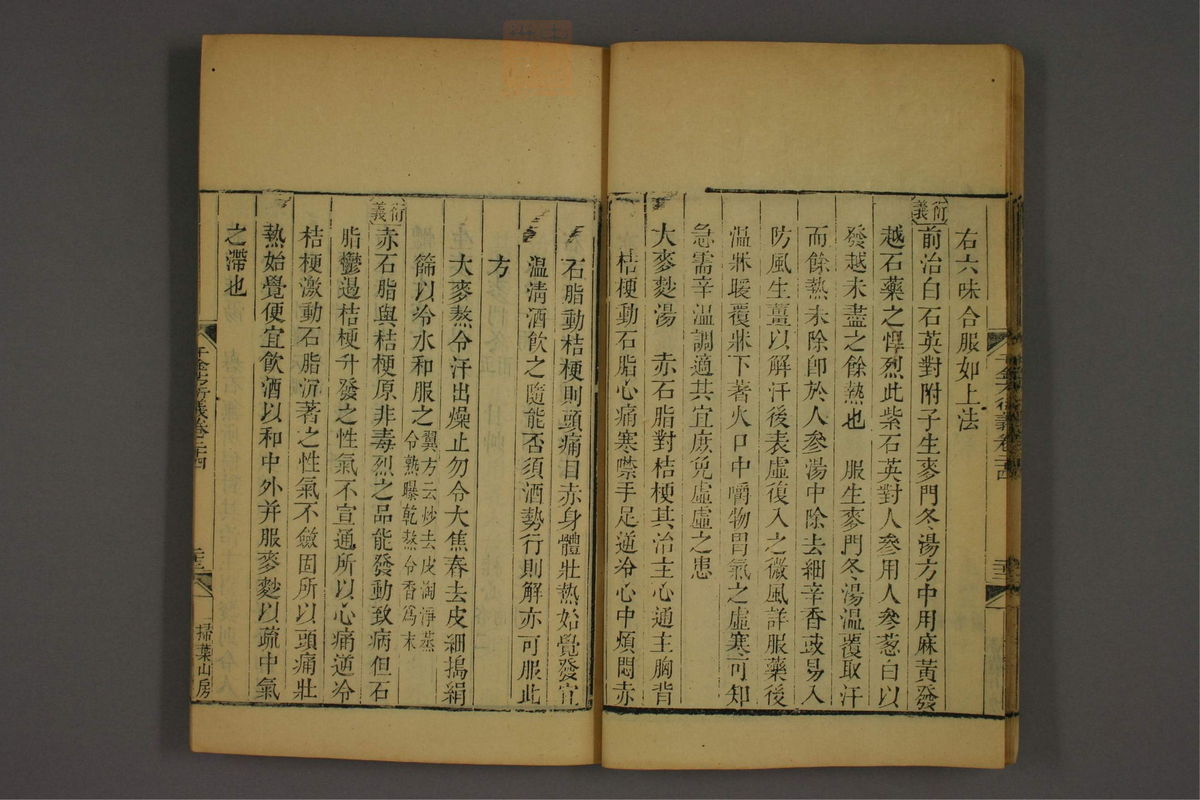 右六味合服如上法
衍義
前治白石英對附子生麥門冬湯方中用麻黃發
越石藥之悍烈此紫石英對人參用人參葱白以
發越未盡之餘熱也　服生麥門冬湯溫覆取汗
而餘熱未除卽於人參湯中除去細辛香豉易入
防風生薑以解汗後表虛復入之微風詳服藥後
溫牀暖覆牀下著火口中嚼物胃氣之虛寒可知
急需辛溫調適其宜庶免虛虛之患
大麥麨湯　赤石脂對桔梗其治主心通主胸背
桔梗動石脂心痛寒噤手足逆冷心中煩悶赤
石脂動桔梗則頭痛目赤身體壯熱始覺發宜
溫清酒飲之隨能否須酒勢行則解亦可服此
方
大麥熬令汗出燥止勿令大焦舂去皮細搗絹
篩以冷水和服之翼方云炒去皮淘淨蒸
令熟曝乾熬令香爲末
衍義
赤石脂與桔梗原非毒烈之品能發動致病但石
脂鬱遏桔梗升發之性氣不宣通所以心痛逆冷
桔梗激動石脂沉著之性氣不斂固所以頭痛壯
熱始覺便宜飲酒以和中外幷服麥麨以疏中氣
之滯也
千金方衍義卷二十四
掃葉山房